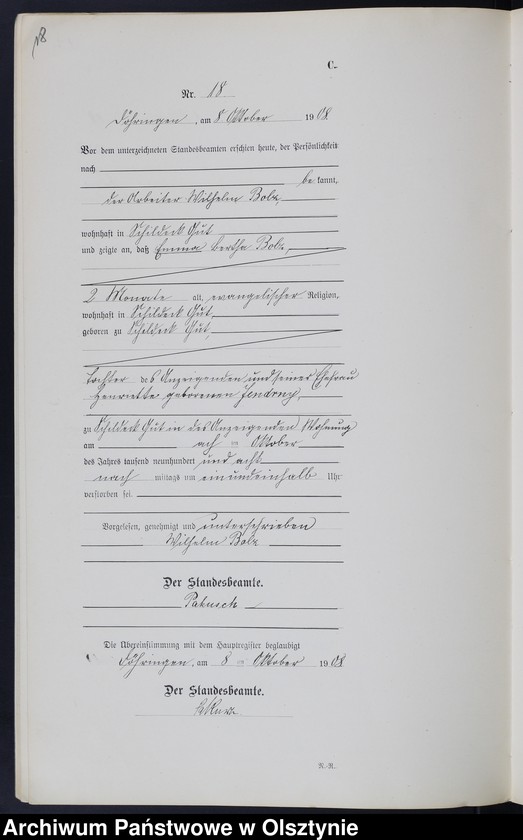 18
C.
Nr. 18.
Döhringen, am 8 Oktober 1908
Vor dem unterzeichneten Standesbeamten erschien heute, der Persönlichkeit
nach
be kannt,
der Arbeiter Wilhelm Bolz,
wohnhaft in Schildeck Gut
und zeigte an, daß Emma Bertha Bolz,
2 Monate alt, evangelischer Religion,
wohnhaft in Schildeck Gut,
geboren zu Schildeck Gut,
Tochter des Anzeigenden und seiner Ehefrau
Henriette geborenen Jendrny,
zu Schildeck Gut in des Anzeigenden Wohnung
am ach ten Oktober
des Jahres tausend neunhundert und acht
nach mittags um einundeinhalb Uhr
verstorben sei.
Vorgelesen, genehmigt und unterschrieben
Wilhelm Bolz
Der Standesbeamte.
Die Übereinstimmung mit dem Hauptregister beglaubigt
Döhringen, am 8 ten Oktober 1908
Der Standesbeamte.
Archiwum Państwowe w Olsztynie